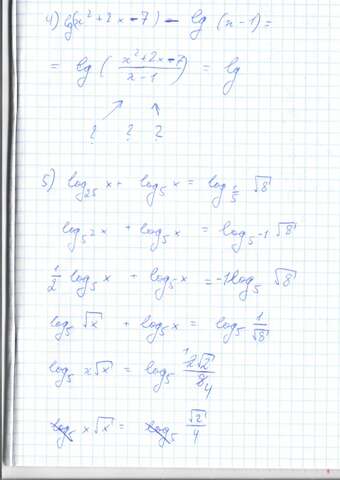 4) lg(x²+2x-7) - lg (x-1) =
= lg ( (x²+2x-7)/(x-1) ) = lg
? ? ?
5) log₂₅ x + log₅ x = log_(1/5) √8
log_(5²) x + log₅ x = log_(5⁻¹) √8
1/2 log₅ x + log₅ x = -1 log₅ √8
log₅ √x + log₅ x = log₅ 1/√8
log₅ x√x = log₅ 2√2/8 1 4
log₅ x√x = log₅ √2/4